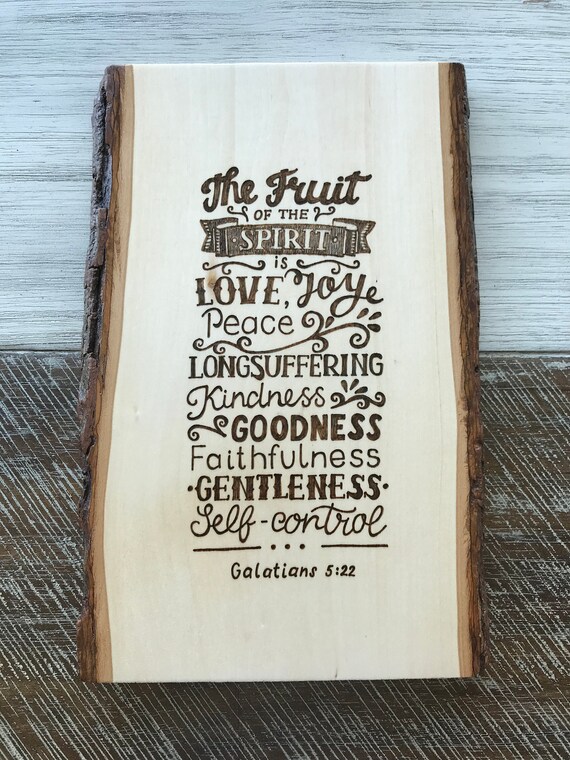 The Fruit
OF THE
SPIRIT
is
LOVE, Joy
Peace
LONGSUFFERING
Kindness
GOODNESS
Faithfulness
·GENTLENESS·
Self-control
Galatians 5:22